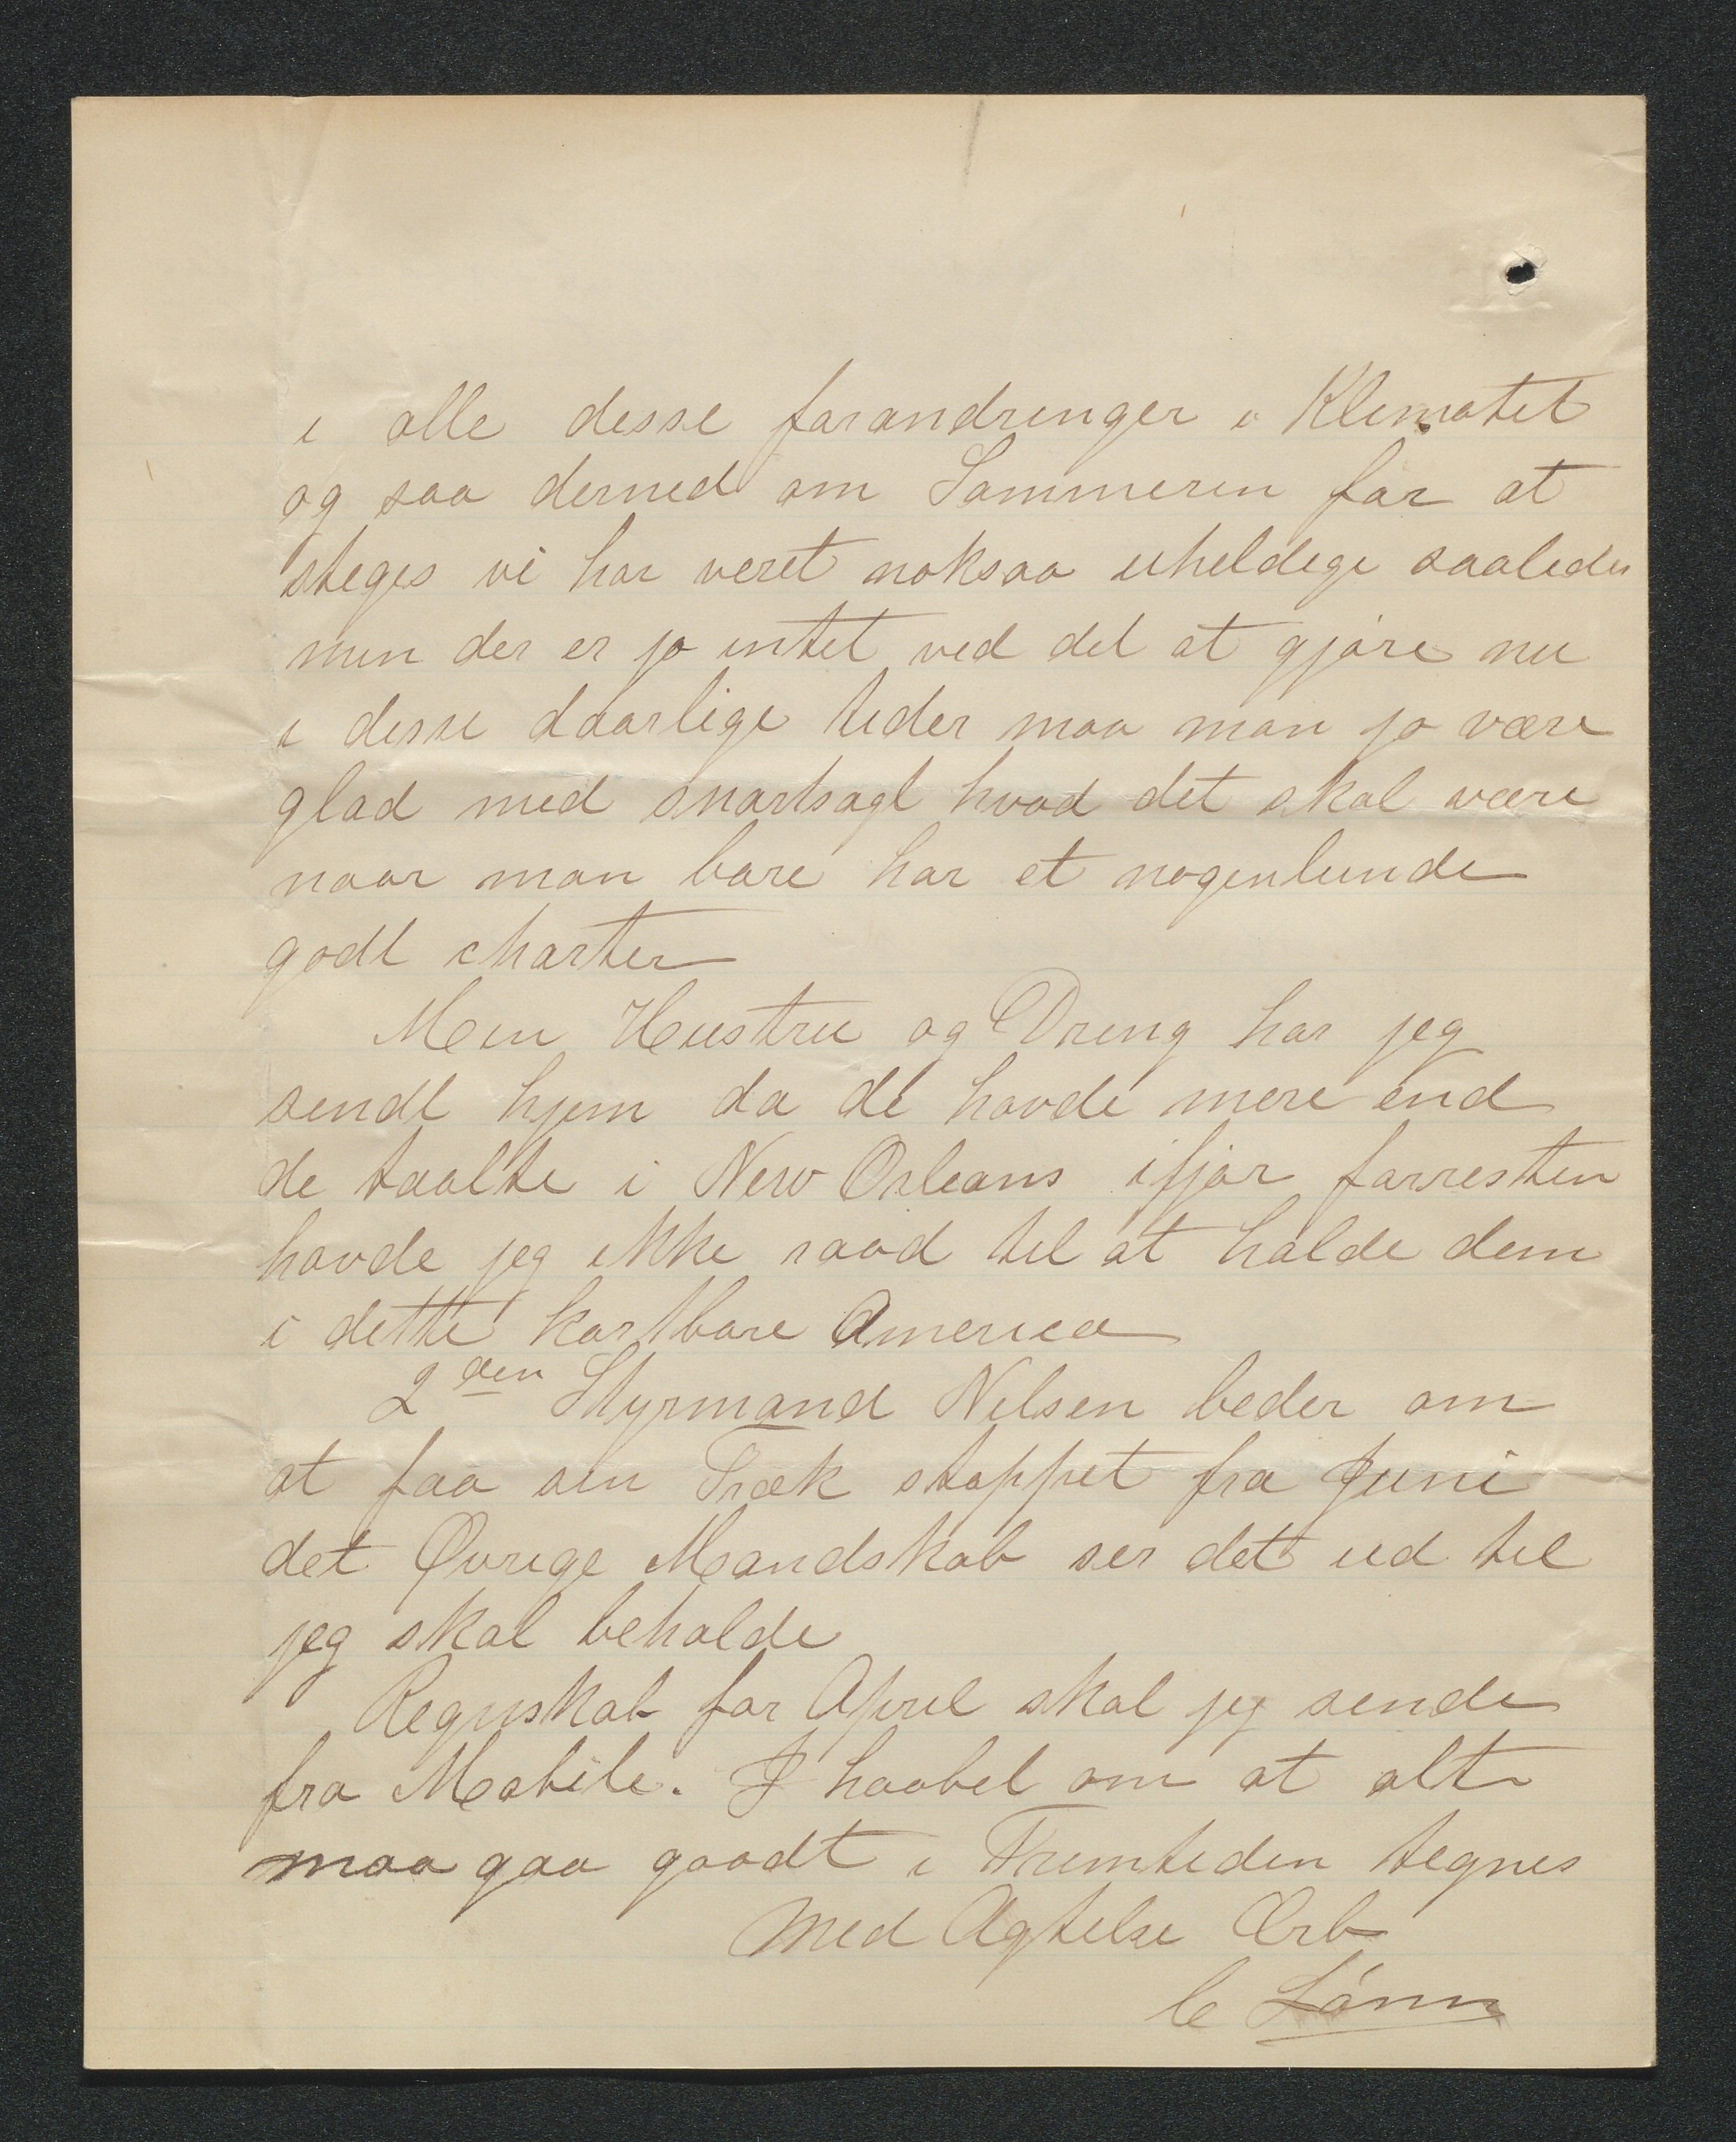 i alle desse forandringer i Klimatet
og saa derned om Sommeren for at
steges vi har veret noksaa uheldige saaledes
men der er jo intet ved det at gjøre nu
i desse daarlige tider maa man jo være
glad med snartsagt hvad det skal være
naar man bare har et nogenlunde
godt charter
Min Hustru og Dreng har jeg
sendt hjem da de havde mere end
de taalte i New Orleans ifjor forresten
havde jeg ikke raad til at holde dem
i dette kostbare America
2den Styrmand Nilsen beder om
at faa sin Træk stoppet fra Juni
det Øvrige Mandskab ser det ud til
jeg skal beholde
Regnskab for April skal jeg sende
fra Mobile. I haabet om at alt
maa gaa goodt i Fremtiden tegnes
Med Agtelse Ærb
C Lønn